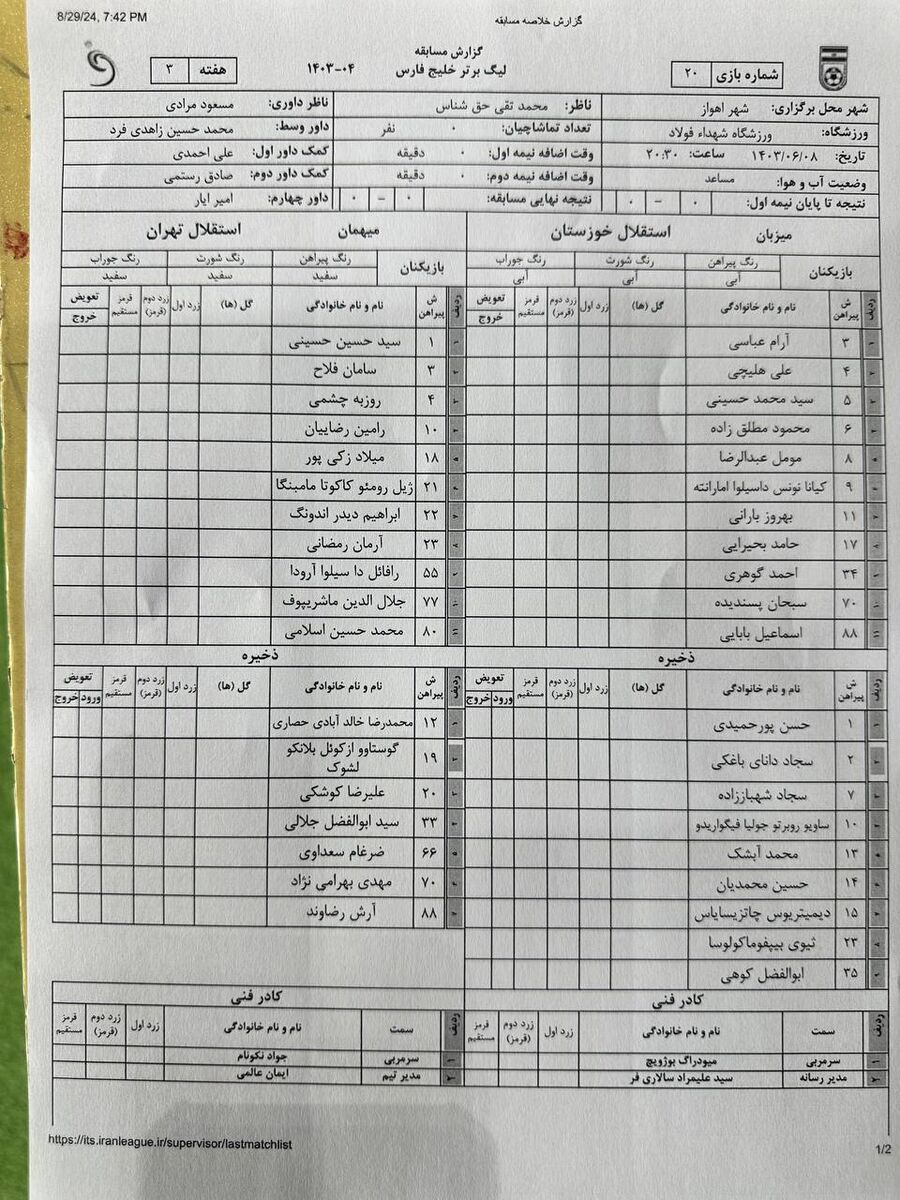 8/29/24, 7:42 PM
گزارش خلاصه مسابقه
گزارش مسابقه
شماره بازی ۲۰ لیگ برتر خلیج فارس ۱۴۰۳-۰۴ هفته ۳
شهر محل برگزاری: شهر اهواز ناظر: محمد تقی حق شناس ناظر داوری: مسعود مرادی
ورزشگاه: ورزشگاه شهداء فولاد تعداد تماشاچیان: ۰ نفر داور وسط: محمد حسین زاهدی فرد
تاریخ: ۱۴۰۳/۰۶/۰۸ ساعت: ۲۰:۳۰ وقت اضافه نیمه اول: ۰ دقیقه کمک داور اول: علی احمدی
وضعیت آب و هوا: مساعد وقت اضافه نیمه دوم: ۰ دقیقه کمک داور دوم: صادق رستمی
نتیجه تا پایان نیمه اول: ۰ – ۰ نتیجه نهایی مسابقه: ۰ – ۰ داور چهارم: امیر ایار
میزبان استقلال خوزستان
بازیکنان رنگ پیراهن رنگ شورت رنگ جوراب
آبی آبی آبی
ردیف ش پیراهن نام و نام خانوادگی گل (ها) زرد اول زرد دوم (قرمز) قرمز مستقیم تعویض خروج
۱ ۳ آرام عباسی
۲ ۴ علی هلیچی
۳ ۵ سید محمد حسینی
۴ ۶ محمود مطلق زاده
۵ ۸ مومل عبدالرضا
۶ ۹ کیانا نونس داسیلوا امارانته
۷ ۱۱ بهروز بارانی
۸ ۱۷ حامد بحیرایی
۹ ۳۴ احمد گوهری
۱۰ ۷۰ سبحان پسندیده
۱۱ ۸۸ اسماعیل بابایی
ذخیره
ردیف ش پیراهن نام و نام خانوادگی گل (ها) زرد اول زرد دوم (قرمز) قرمز مستقیم تعویض ورود خروج
۱ ۱ حسن پورحمیدی
۲ ۲ سجاد دانای باغکی
۳ ۷ سجاد شهباززاده
۴ ۱۰ ساویو روبرتو جولیا فیگواریدو
۵ ۱۳ محمد آبشک
۶ ۱۴ حسین محمدیان
۷ ۱۵ دیمیتریوس چاتزیسایاس
۸ ۲۳ ثیوی بیپفوماکولوسا
۹ ۳۵ ابوالفضل کوهی
کادر فنی
ردیف سمت نام و نام خانوادگی زرد اول زرد دوم (قرمز) قرمز مستقیم
۱ سرمربی میودراگ بوژویچ
۲ مدیر رسانه سید علیمراد سالاری فر
میهمان استقلال تهران
بازیکنان رنگ پیراهن رنگ شورت رنگ جوراب
سفید سفید سفید
ردیف ش پیراهن نام و نام خانوادگی گل (ها) زرد اول زرد دوم (قرمز) قرمز مستقیم تعویض خروج
۱ ۱ سید حسین حسینی
۲ ۳ سامان فلاح
۳ ۴ روزبه چشمی
۴ ۱۰ رامین رضاییان
۵ ۱۸ میلاد زکی پور
۶ ۲۱ ژیل رومئو کاکوتا مامبنگا
۷ ۲۲ ابراهیم دیدر اندونگ
۸ ۲۳ آرمان رمضانی
۹ ۵۵ رافائل دا سیلوا آرودا
۱۰ ۷۷ جلال الدین ماشریپوف
۱۱ ۸۰ محمد حسین اسلامی
ذخیره
ردیف ش پیراهن نام و نام خانوادگی گل (ها) زرد اول زرد دوم (قرمز) قرمز مستقیم تعویض ورود خروج
۱ ۱۲ محمدرضا خالد آبادی حصاری
۲ ۱۹ گوستاوو ازکوئل بلانکو لشوک
۳ ۲۰ علیرضا کوشکی
۴ ۳۳ سید ابوالفضل جلالی
۵ ۶۶ ضرغام سعداوی
۶ ۷۰ مهدی بهرامی نژاد
۷ ۸۸ آرش رضاوند
کادر فنی
ردیف سمت نام و نام خانوادگی زرد اول زرد دوم (قرمز) قرمز مستقیم
۱ سرمربی جواد نکونام
۲ مدیر تیم ایمان عالمی
https://its.iranleague.ir/supervisor/lastmatchlist
1/2